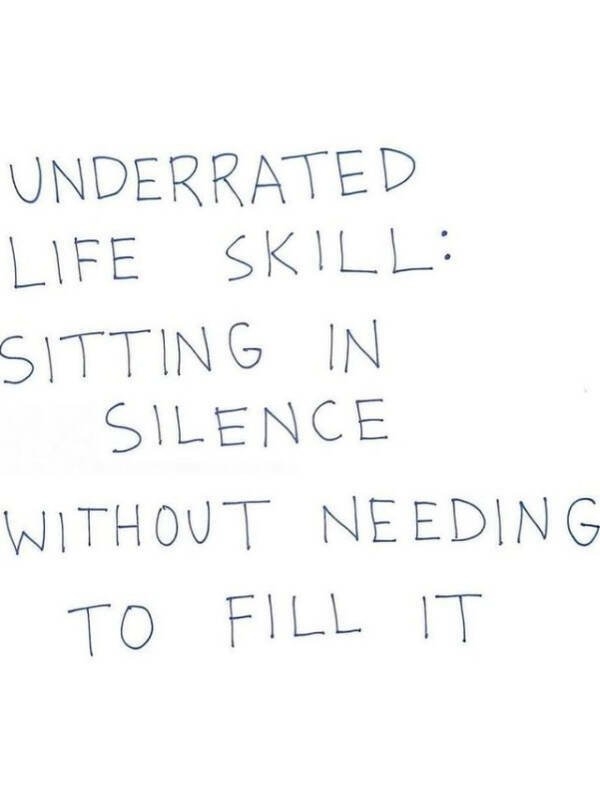 UNDERRATED
LIFE SKILL:
SITTING IN
SILENCE
WITHOUT NEEDING
TO FILL IT